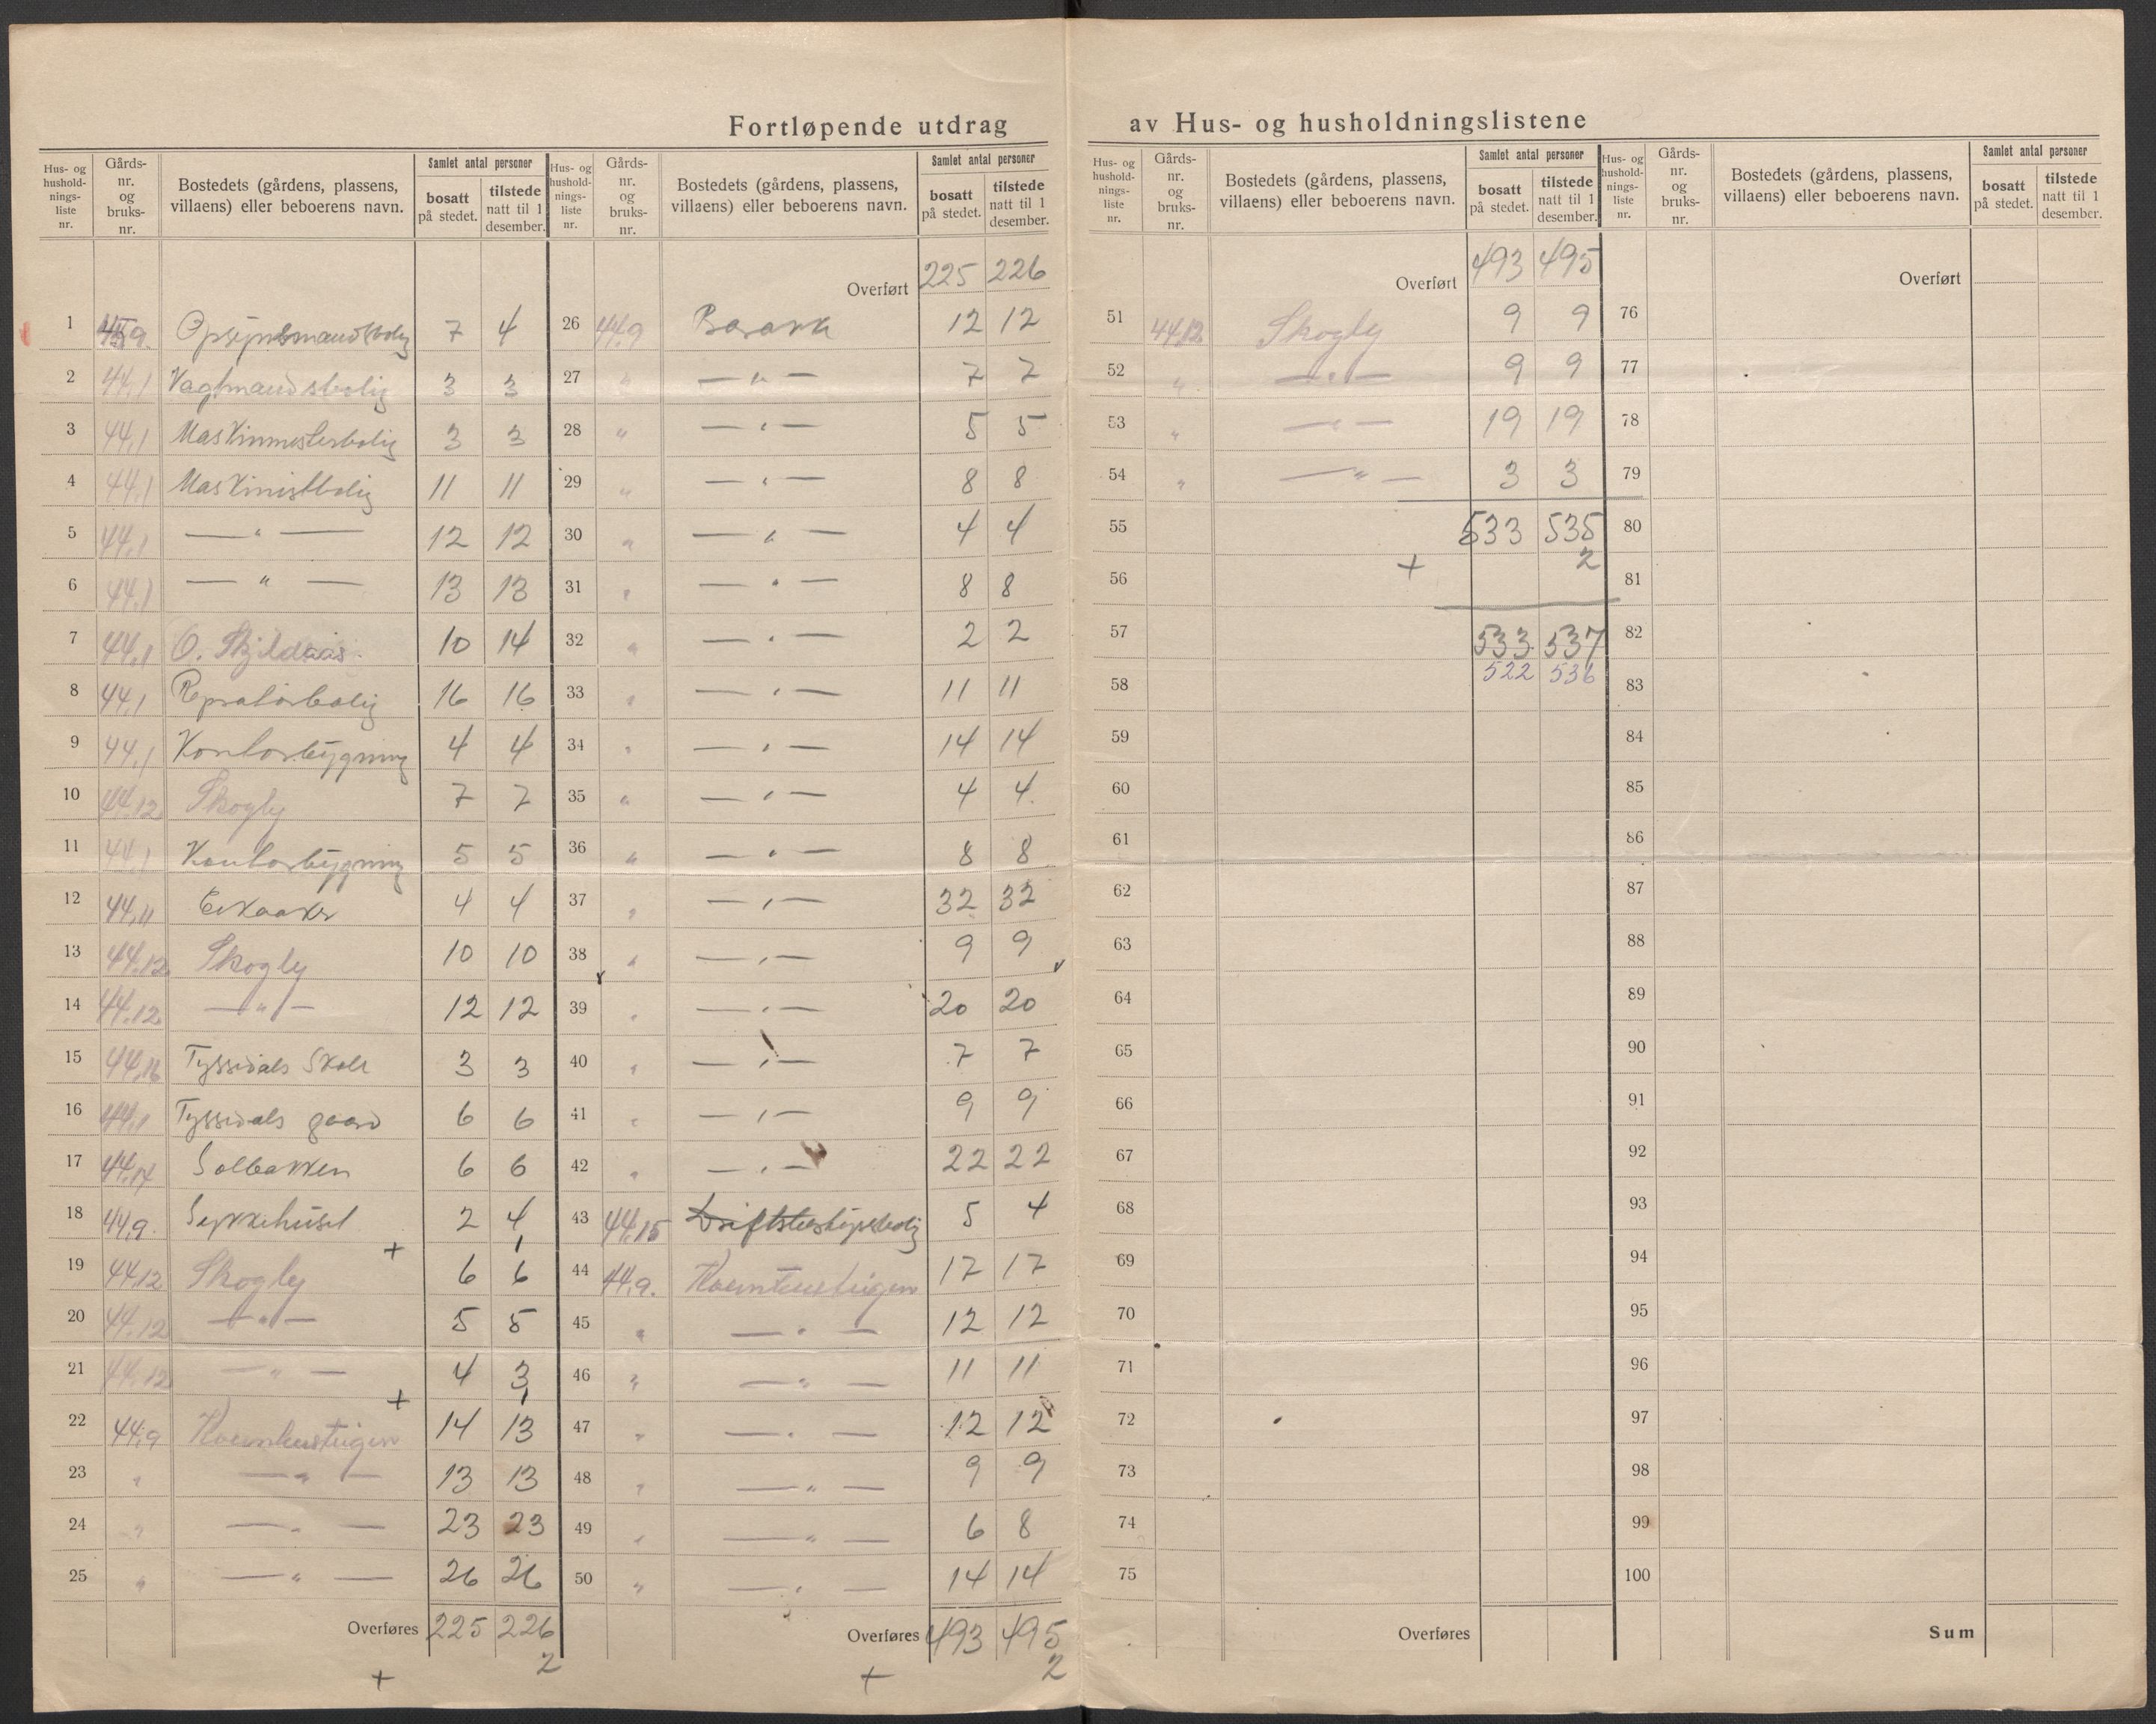 Fortløpende utdrag av Hus- og husholdningslistene
Hus- og hushold-nings-liste nr. Gårds-nr. og bruks-nr. Bostedets (gårdens, plassens, villaens) eller beboerens navn. Samlet antal personer bosatt på stedet. tilstede natt til 1 desember.
1 Opsynsmandsbolig 7 4
2 44,1 Vagtmandsbolig 3 3
3 44,1 Maskinmesterbolig 3 3
4 44,1 Maskinistbolig 11 11
5 44,1 — " — 12 12
6 44,1 — " — 13 13
7 44,1 O. 10 14
8 44,1 Repratørbolig 16 16
9 44,1 Kontorbygning 4 4
10 44,12 Skogly 7 7
11 44,1 Kontorbygning 5 5
12 44,11 4 4
13 44,12 Skogly 10 10
14 44,12 — " — 12 12
15 44,16 Tyssedals Skole 3 3
16 44,1 Tyssedals gaard 6 6
17 Solbakken 6 6
18 44,9. Sykkehuset 2 4
+ 1
19 44,12 Skogly 6 6
20 44,12 — " — 5 5
21 44,12 — " — 4 3
+ 1
22 44,9 14 13
23 " — " — 13 13
24 " — " — 23 23
25 " — " — 26 26
Overføres 225 226
+ 2
Hus- og hushold-nings-liste nr. Gårds-nr. og bruks-nr. Bostedets (gårdens, plassens, villaens) eller beboerens navn. Samlet antal personer bosatt på stedet. tilstede natt til 1 desember.
Overført 225 226
26 44,9 Barakk 12 12
27 " — " — 7 7
28 " — " — 5 5
29 " — " — 8 8
30 " — " — 4 4
31 " — " — 8 8
32 " — " — 2 2
33 " — " — 11 11
34 " — " — 14 14
35 " — " — 4 4
36 " — " — 8 8
37 " — " — 32 32
38 " — " — 9 9
39 " — " — 20 20
40 " — " — 7 7
41 " — " — 9 9
42 " — " — 22 22
43 44,15 5 4
44 44,9. 17 17
45 " — " — 12 12
46 " — " — 11 11
47 " — " — 12 12
48 " — " — 9 9
49 " — " — 6 8
50 " — " — 14 14
Overføres 493 495
+ 2
Hus- og hushold-nings-liste nr. Gårds-nr. og bruks-nr. Bostedets (gårdens, plassens, villaens) eller beboerens navn. Samlet antal personer bosatt på stedet. tilstede natt til 1 desember.
Overført 493 495
51 44,12 Skogly 9 9
52 " — " — 9 9
53 " — " — 19 19
54 " — " — 3 3
55 533 535
56 + 2
57 533 537
58 522 536
59
60
61
62
63
64
65
66
67
68
69
70
71
72
73
74
75
Overføres
Hus- og hushold-nings-liste nr. Gårds-nr. og bruks-nr. Bostedets (gårdens, plassens, villaens) eller beboerens navn. Samlet antal personer bosatt på stedet. tilstede natt til 1 desember.
Overført
76
77
78
79
80
81
82
83
84
85
86
87
88
89
90
91
92
93
94
95
96
97
98
99
100
Sum